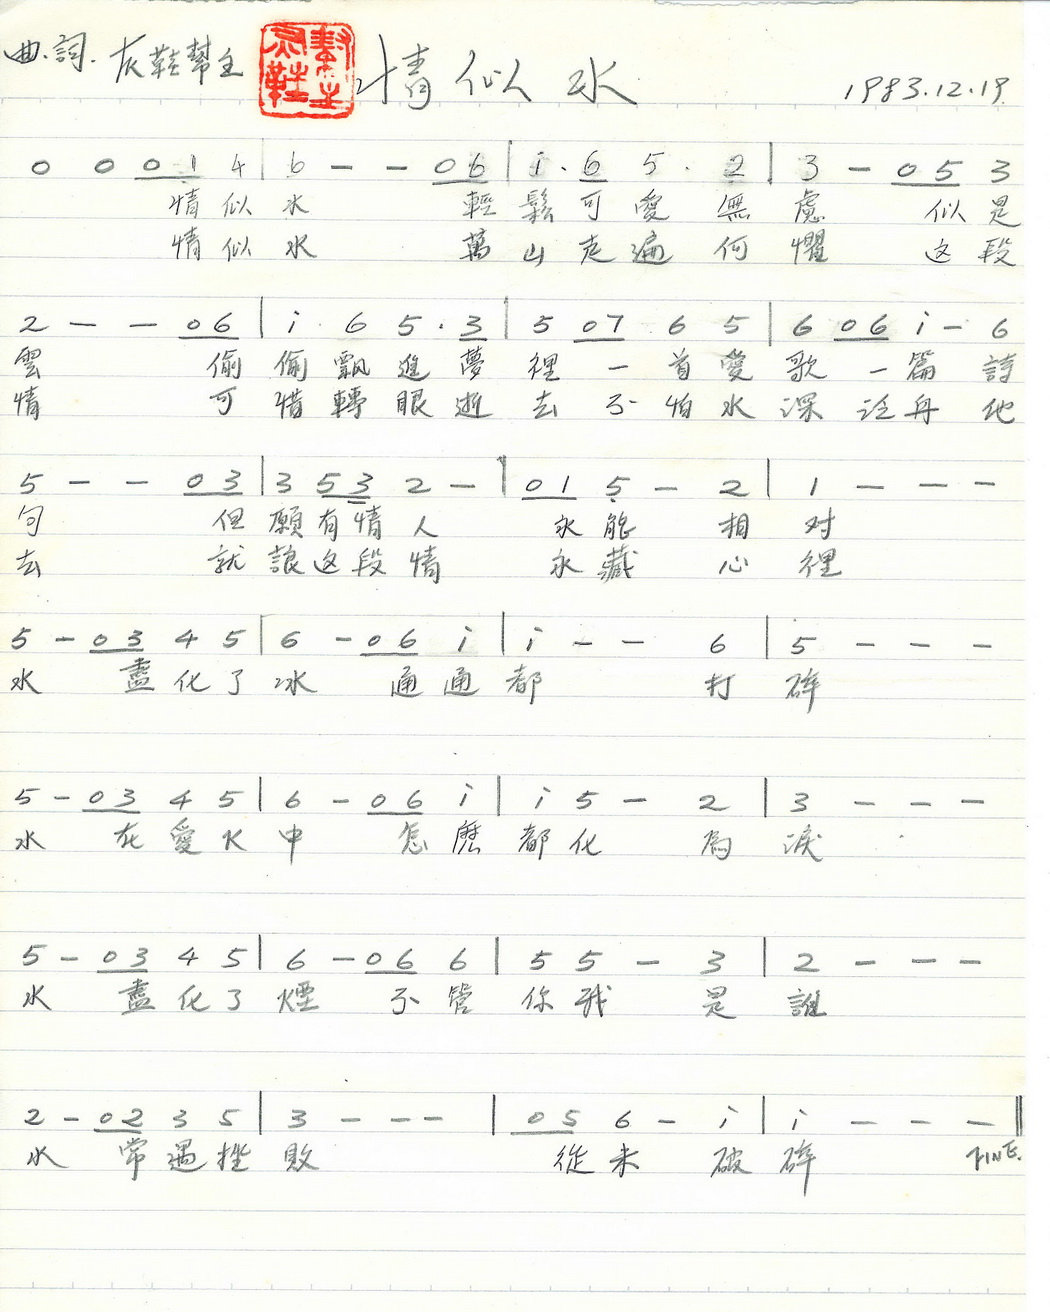 曲.詞.灰鞋幫主 情似水 1983.12.19
0 0 0 1 4 | 6 - - 0 6 | i · 6 5 · 2 | 3 - 0 5 3
情似水 輕鬆可愛無慮 似是
情似水 萬山走遍何懼 这段
2 - - 0 6 | i · 6 5 · 3 | 5 0 7 6 5 | 6 0 6 i - 6
雲 偷偷飄進夢裡 一首愛歌 一篇詩
情 可惜轉眼逝去 不怕水深 舟 他
5 - - 0 3 | 3 5 3 2 - | 0 1 5 - 2 | 1 - - -
句 但願有情人 永能相对
去 就讓这段情 永藏心裡
5 - 0 3 4 5 | 6 - 0 6 i | i - - 6 | 5 - - -
水 盡化了冰 通通都打碎
5 - 0 3 4 5 | 6 - 0 6 i | i 5 - 2 | 3 - - -
水 在愛水中 怎麽都化為淚
5 - 0 3 4 5 | 6 - 0 6 6 | 5 5 - 3 | 2 - - -
水 盡化了煙 不管你我是誰
2 - 0 2 3 5 | 3 - - - | 0 5 6 - i | i - - - ‖
水 常遇挫敗 從未破碎 FINE.